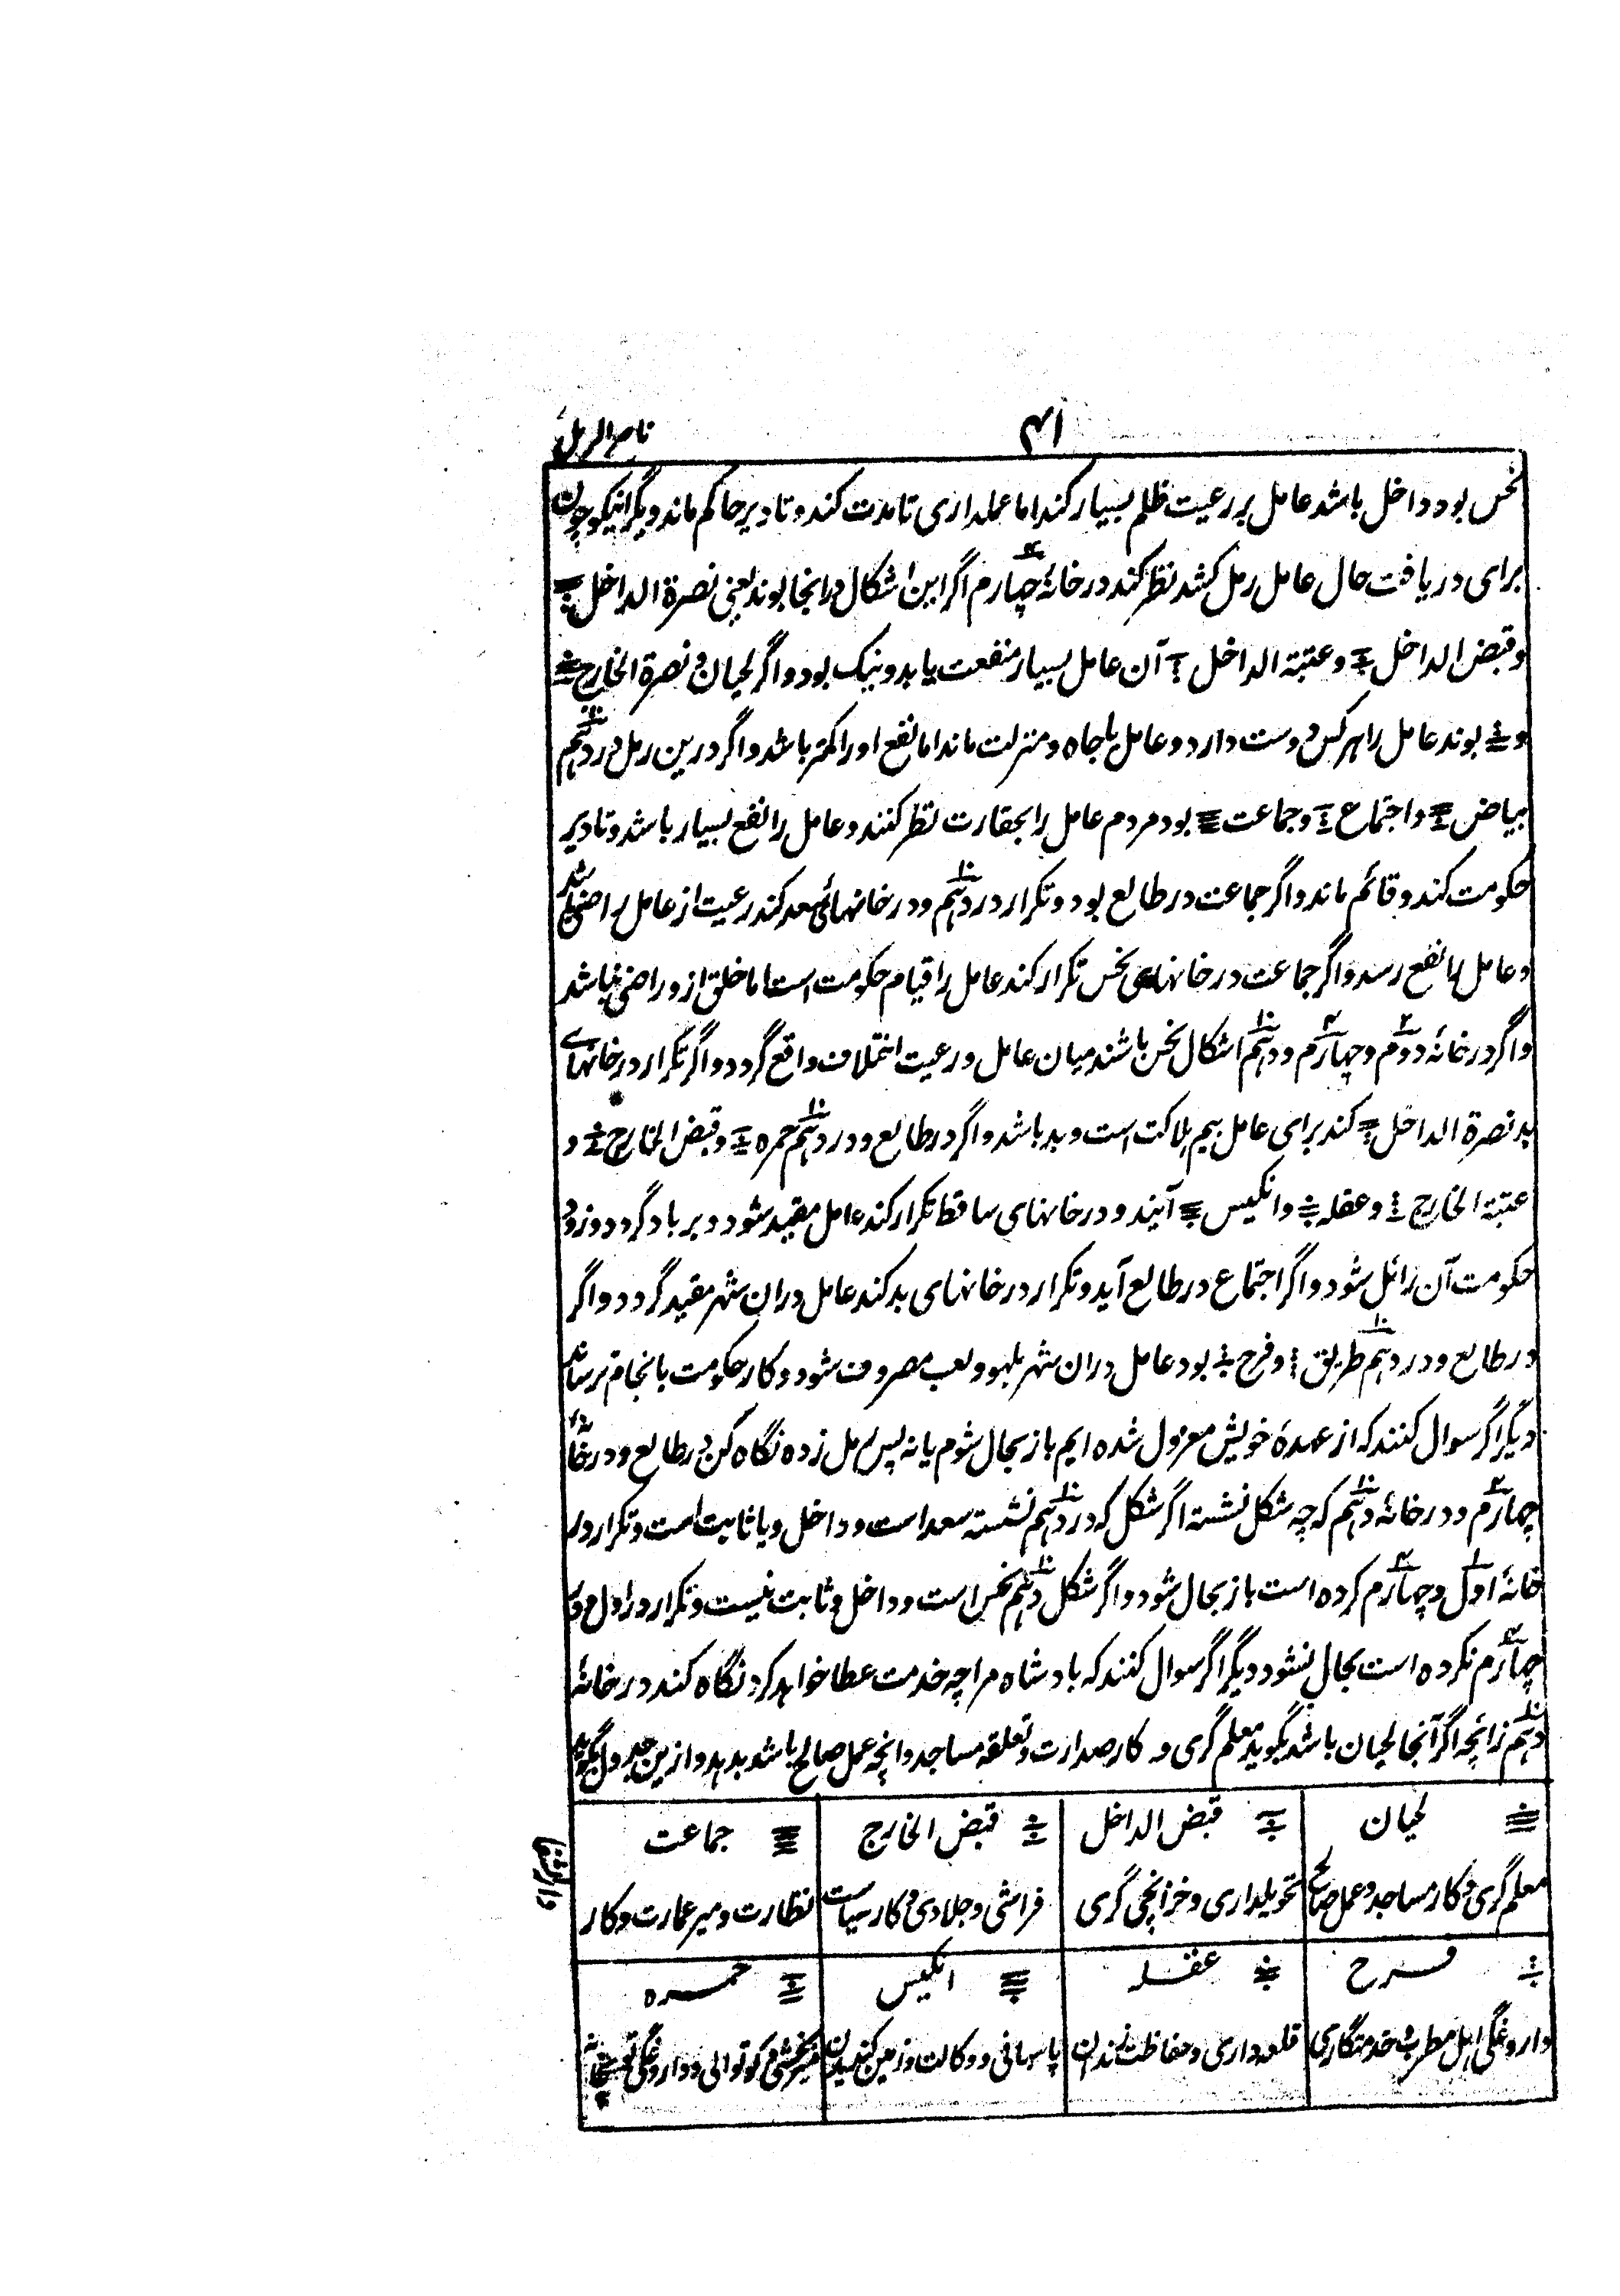 ۴۱
ناصر الرمل
نحس بود داخل باشد عامل بر رعیت ظلم بسیار کند اما عملداری تا مدت کند و تا دیر حاکم ماند و دیگر انیکو چون
برای دریافت حال عامل رمل کشد نظر کند در خانهٔ چهارم اگر این اشکال در انجا بوند یعنی نصرة الداخل
و قبض الداخل و عتبة الداخل آن عامل بسیار منفعت یابد و نیک بود و اگر لحیان و نصرة الخارج
و بوند عامل را هر کس دوست دارد و عامل با جاه و منزلت ماند اما نفع او را کمتر باشد و اگر درین رمل در دهم
بیاض و اجتماع و جماعت بود مردم عامل را بحقارت نظر کنند و عامل را نفع بسیار باشد و تا دیر
حکومت کند و قائم ماند و اگر جماعت در طالع بود و تکرار در دهم و در خانهائی سعد کند رعیت از عامل راضی باشد
و عامل را نفع رسد و اگر جماعت در خانهای نحس تکرار کند عامل را قیام حکومت است اما خلق ازو راضی نباشد
و اگر در خانهٔ دوم و چهارم و دهم اشکال نحس باشند میان عامل و رعیت اختلاف واقع گردد و اگر تکرار در خانهای
بد نصرة الداخل کند برای عامل بیم هلاکت است و بد باشد و اگر در طالع و در دهم حمره و قبض الخارج و
عتبة الخارج و عقله و انکیس آیند و در خانهای ساقط تکرار کند عامل مقید شود و برباد گردد و زود
حکومت آن زائل شود و اگر اجتماع در طالع آید و تکرار در خانهای بد کند عامل دران شهر مقید گردد و اگر
در طالع و در دهم طریق و فرح بود عامل دران شهر بلهو و لعب مصروف شود و کار حکومت بانجام نرساند
دیگر اگر سوال کنند که از عهدهٔ خویش معزول شده ایم باز بحال شوم یا نه پس رمل زده نگاه کن در طالع و در خانهٔ
چهارم و در خانهٔ دهم که چه شکل نشسته اگر شکل که در دهم نشسته سعد است و داخل و یا ثابت است و تکرار در
خانهٔ اول و چهارم کرده است باز بحال شود و اگر شکل دهم نحس است و داخل و ثابت نیست و تکرار در اول و
چهارم نکرده است بحال نشود دیگر اگر سوال کنند که بادشاه مرا چه خدمت عطا خواهد کرد نگاه کند در خانهٔ
دهم زائچه اگر آنجا لحیان باشد بگوید معلم گری و کار صدارت و تعلقه مساجد و انچه عمل صالح باشد بدهد و ازین جدول بگوید
لحیان
معلم گری و کار مساجد و عمل صالح
قبض الداخل
تحویلداری و خزانچی گری
قبض الخارج
فراشی و جلادی و کار سیاست
جماعت
نظارت و میر عمارت و کار
فرح
داروغگی اهل مطرب و خدمتگاری
عقله
قلعه داری و حفاظت زندان
انکیس
پاسبانی و وکالت و زمین کنیدن
حمره
میر بخشی و کوتوالی و داروغگی توپخانه